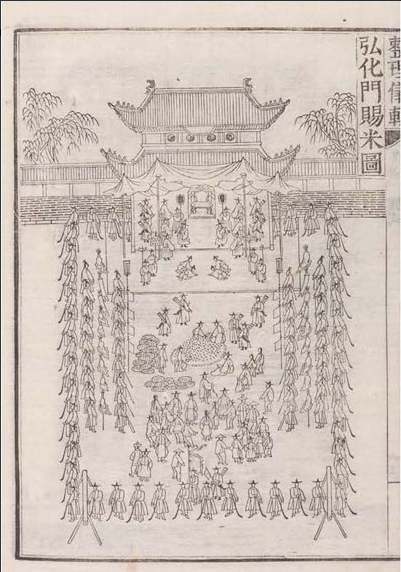 整理儀軌
弘化門賜米圖